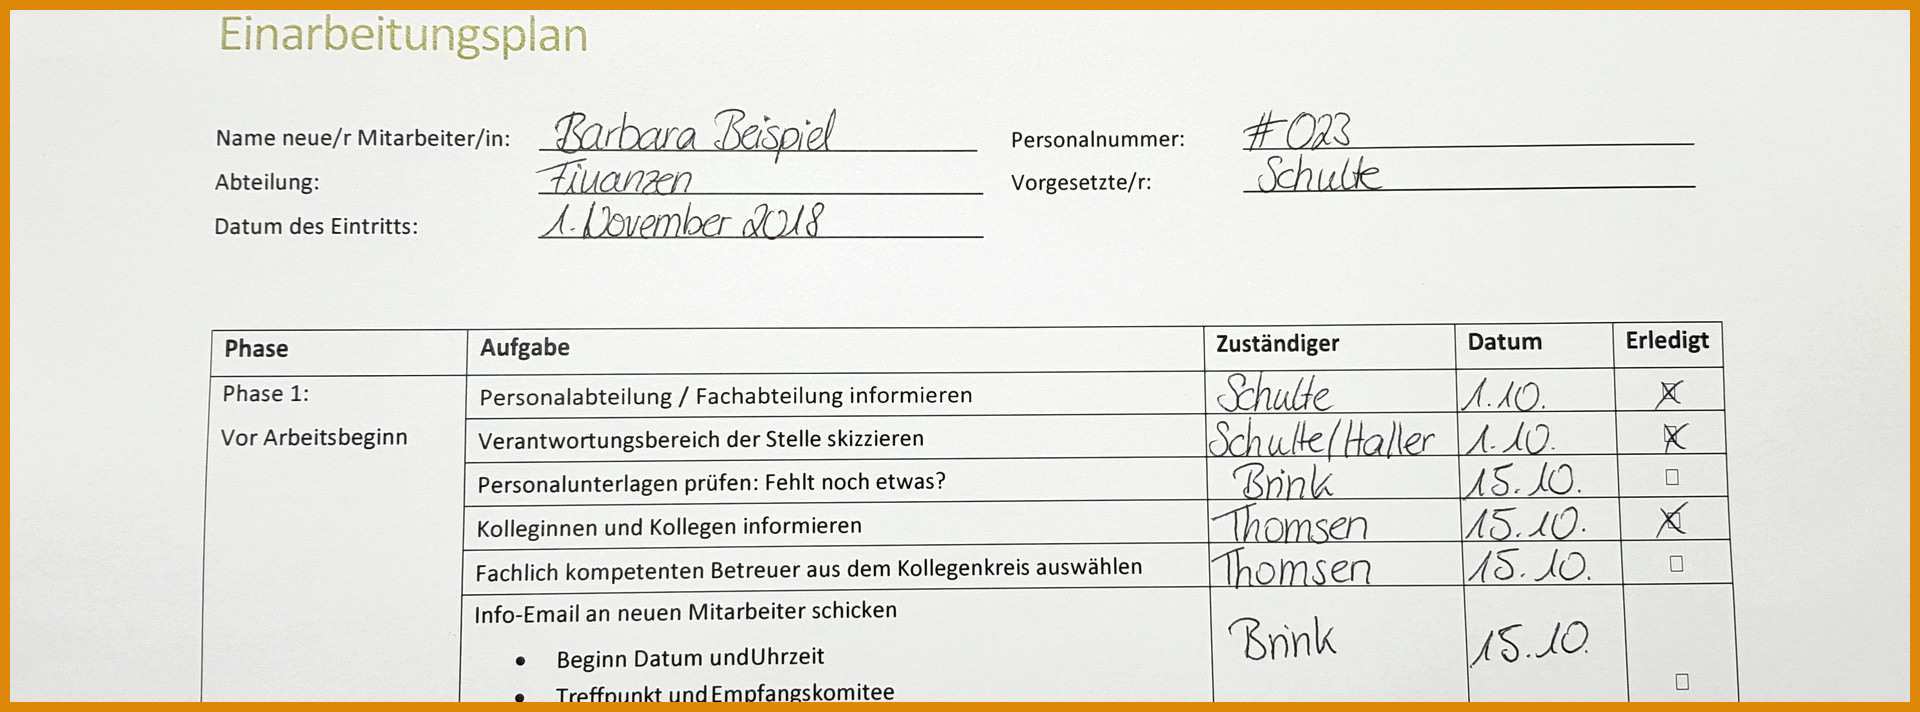 Einarbeitungsplan
Name neue/r Mitarbeiter/in: Barbara Beispiel Personalnummer: #023
Abteilung: Finanzen Vorgesetzte/r: Schulte
Datum des Eintritts: 1. November 2018
Phase Aufgabe Zuständiger Datum Erledigt
Phase 1: Personalabteilung / Fachabteilung informieren Schulte 1.10.
Vor Arbeitsbeginn Verantwortungsbereich der Stelle skizzieren Schulte/Haller 1.10.
Personalunterlagen prüfen: Fehlt noch etwas? Brink 15.10.
Kolleginnen und Kollegen informieren Thomsen 15.10.
Fachlich kompetenten Betreuer aus dem Kollegenkreis auswählen Thomsen 15.10.
Info-Email an neuen Mitarbeiter schicken Brink 15.10.
• Beginn Datum undUhrzeit
• Treffpunkt und Empfangskomitee